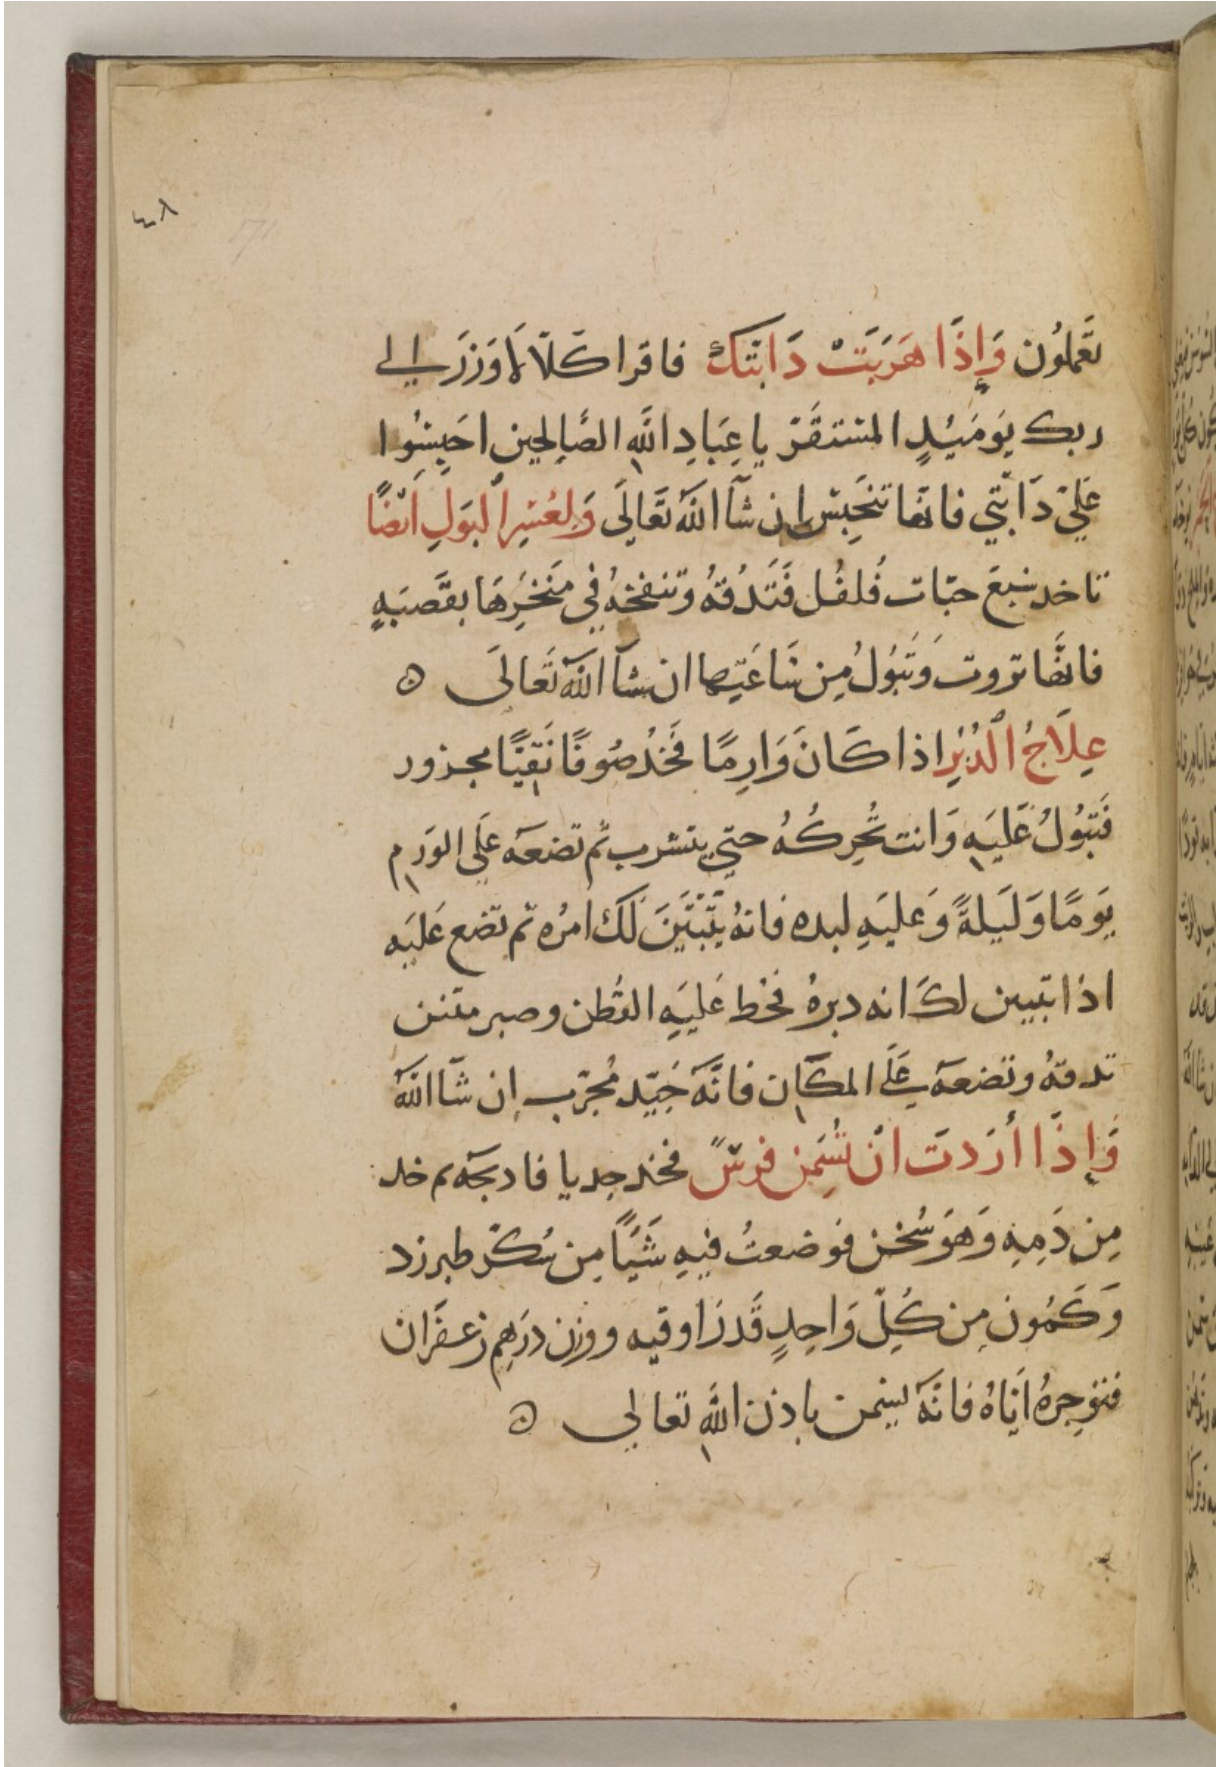 ٤٨
تَعملوُن وَإِذَا هَرَبَتْ دَابّتكَ فاقرا كَلّا لَا وَزَرَ إلي
ربك يَومَئِذٍ المستقَرّ يا عِبَادِ اللَّهِ الصَّالِحين احَبِسُوا
عَلَيّ دَابَّتي فانّها تنحَبِسُ إن شآ اللَّهُ تَعَالَى وَلِعُسْرِ اْلبَولِ أيْضًا
تاخد سَبعَ حبّات فُلفُل فَتَدُقهُ وَتنفخهُ في مَنخَرِهَا بقَصَبَهٍ
فانّهَا تروت وَتَبُولُ مِن سَاعَتِها ان شآ اللَّهُ تَعَالَى ه
عِلَاجُ الْدُبُرِ اذا كَانَ وَارِمًا فَخُذ صُوفًا نَقِيًّا مجزور
فَتَبُولُ عَليَهِ وَانت تُحِركُهُ حتي يتشرب ثم تضعَه عَلَى الوَرَمِ
يَومًا وَلَيلةً وَعليَهِ لبده فانهُ يَتَبَيَّنَ لَكَ امرُه ثم تضع عَليَهِ
اذا تبيين لكَ انه دبرهُ فخط عَليَهِ القُطن وصبر متنن
تدقهُ وتضعهَ عَلَى المكَانِ فانَّهَ جَيّد مُجرّب إن شآ اللَّه
وَإِذَا أرَدتَ انْ تُسَمِن فرسً فخذ جديا فادبحَه ثم خذ
مِن دَمِهِ وَهوَ سُخن فوضعتُ فيهِ شَيًا مِن سُكّر طبرزد
وَكَمُون مِن كُلِّ وَاحِدٍ قَدرَ اوقيه ووزن دِرَهِم زعفَرَان
فتوَجِرهُ ايَاهُ فانَّهَ يسمن باذن اللَّهِ تعالي ه